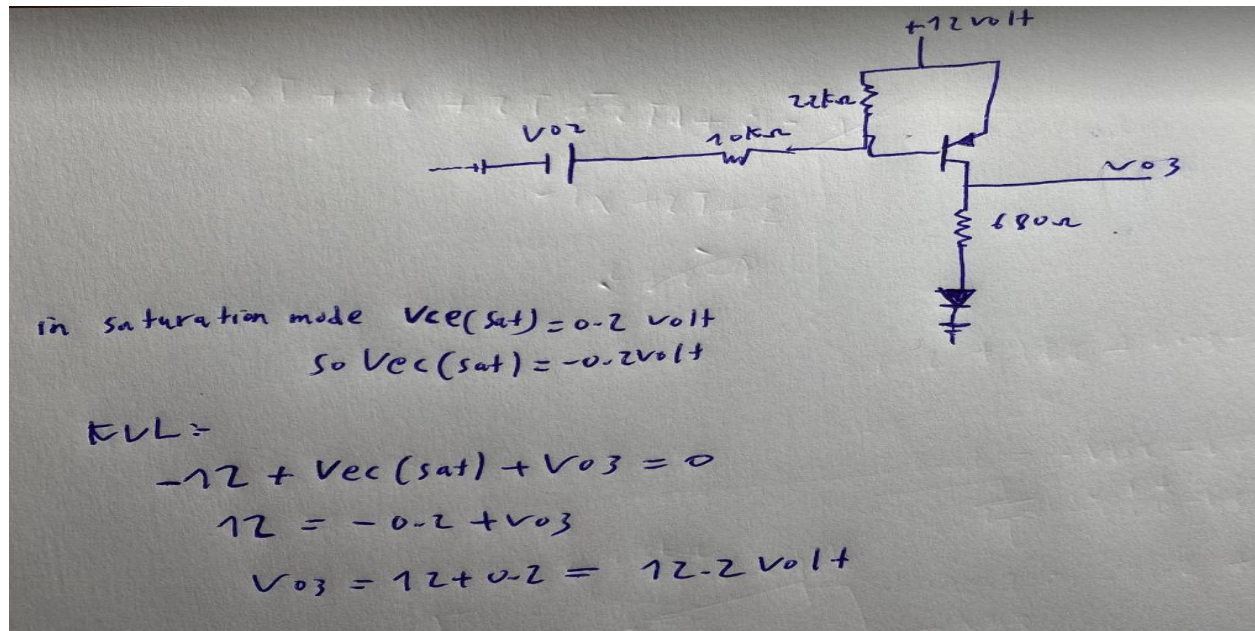 +12 volt
22kΩ
Vo2
10kΩ
Vo3
680Ω
in saturation mode Vce(sat) = 0.2 volt
so Vec(sat) = -0.2 volt
KVL:-
-12 + Vec(sat) + Vo3 = 0
12 = -0.2 + Vo3
Vo3 = 12 + 0.2 = 12.2 volt